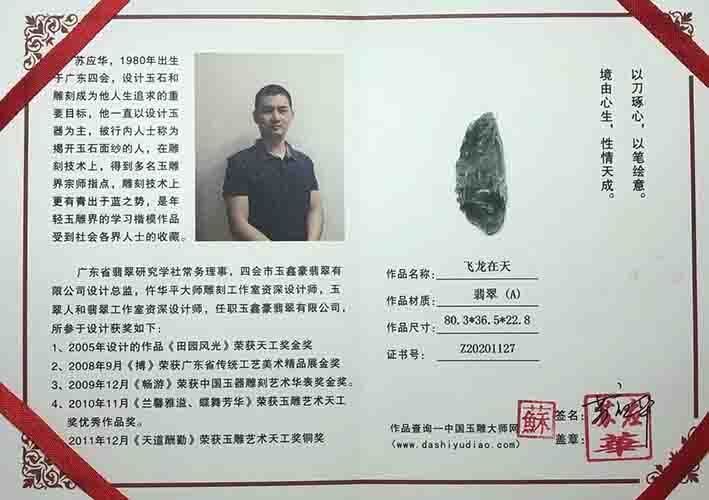 苏应华，1980年出生
于广东四会，设计玉石和
雕刻成为他人生追求的重
要目标，他一直以设计玉
器为主，被行内人士称为
揭开玉石面纱的人，在雕
刻技术上，得到多名玉雕
界宗师指点，雕刻技术上
更有青出于蓝之势，是年
轻玉雕界的学习楷模作品
受到社会各界人士的收藏。
广东省翡翠研究学社常务理事，四会市玉鑫豪翡翠有
限公司设计总监，仵华平大师雕刻工作室资深设计师，玉
翠人和翡翠工作室资深设计师，任职玉鑫豪翡翠有限公司，
所参于设计获奖如下：
1、2005年设计的作品《田园风光》荣获天工奖金奖
2、2008年9月《博》荣获广东省传统工艺美术精品展金奖
3、2009年12月《畅游》荣获中国玉器雕刻艺术华表奖金奖。
4、2010年11月《兰馨雅溢、蝶舞芳华》荣获玉雕艺术天工
奖优秀作品奖。
2011年12月《天道酬勤》荣获玉雕艺术天工奖铜奖
以刀琢心，以笔绘意。
境由心生，性情天成。
作品名称：飞龙在天
作品材质：翡翠 (A)
作品尺寸：80.3*36.5*22.8
证书号：Z20201127
作品查询一中国玉雕大师网
(www.dashiyudiao.com)
蘇
签名：
盖章：
華